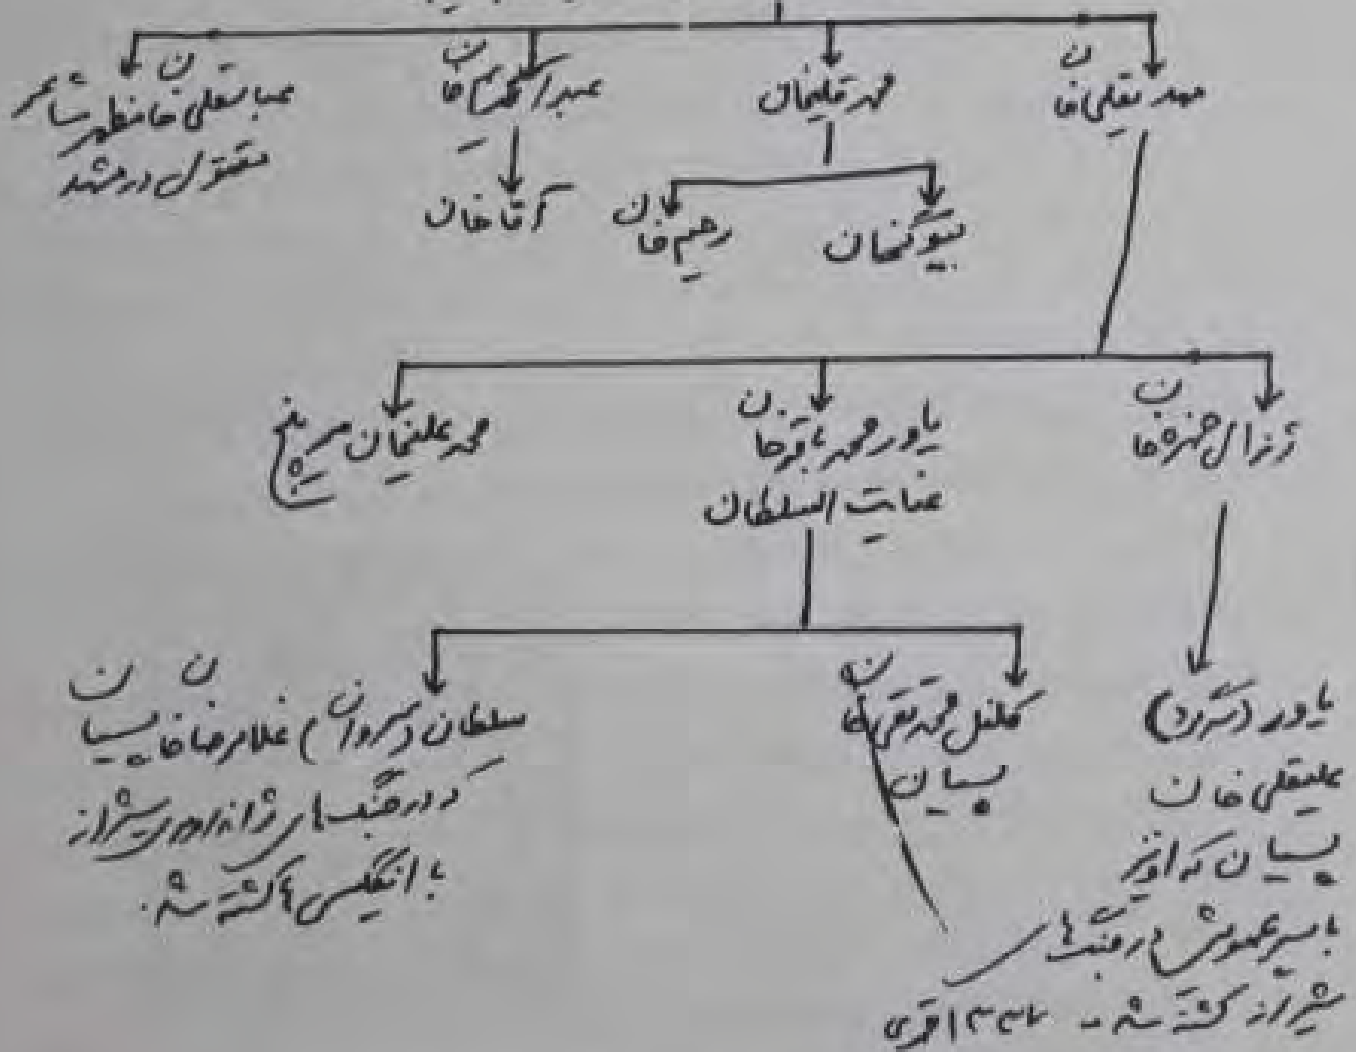 مهدیقلی خان
محمدقلیخان
عبدالکریم خان
عباسقلی خان مظهر شاعر
مقتول در مشهد
بیوکخان
رحیم خان
آقا خان
ژنرال حمزه خان
یاور محمد باقر خان
عنایت السلطان
محمد علیخان سرپنج
یاور (سرگرد)
علیقلی خان
پسیان که او نیز
با پسر عمویش در جنگهای
شیراز کشته شد - ۱۳۳۴ قمری
کلنل محمد تقی خان
پسیان
سلطان (سروان) غلامرضا خان پسیان
که در جنگهای ژاندارمری شیراز
با انگلیسی ها کشته شد.